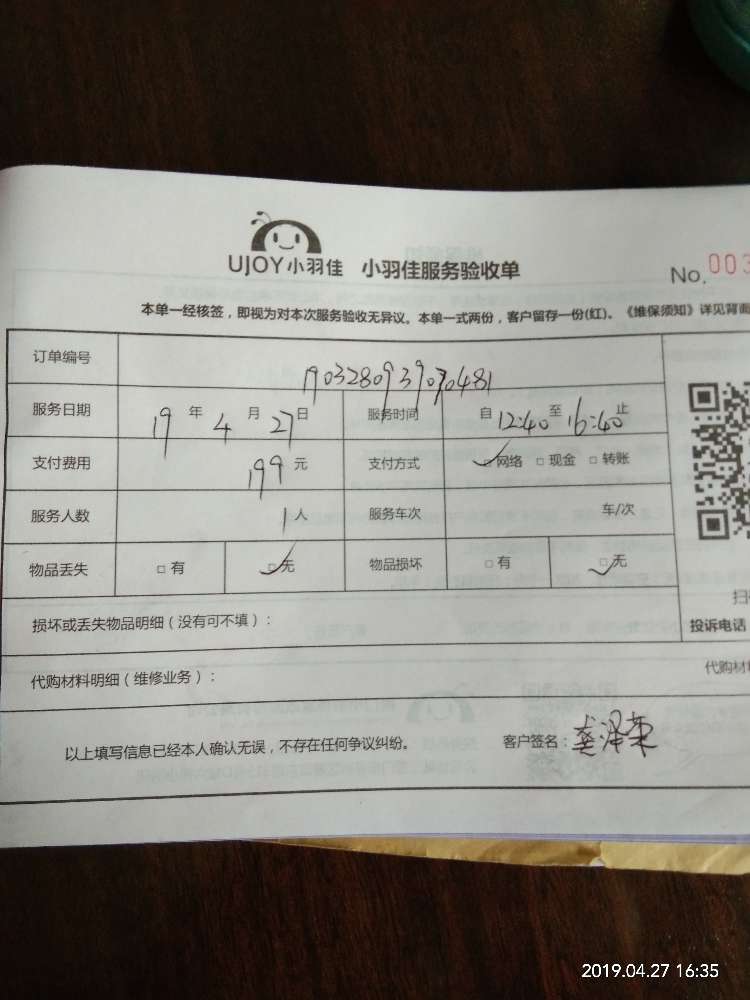 UJOY小羽佳 小羽佳服务验收单
No. 003
本单一经核签，即视为对本次服务验收无异议。本单一式两份，客户留存一份(红)。《维保须知》详见背面
订单编号 1903280939070481
服务日期 19 年 4 月 27 日 服务时间 自 12:40 至 16:40 止
支付费用 199 元 支付方式 ☑网络 □现金 □转账
服务人数 1人 服务车次 车/次
物品丢失 □有 ☑无 物品损坏 □有 ☑无
扫
损坏或丢失物品明细（没有可不填）：
投诉电话
代购材料明细（维修业务）：
代购材
以上填写信息已经本人确认无误，不存在任何争议纠纷。 客户签名：龚泽荣
2019.04.27 16:35